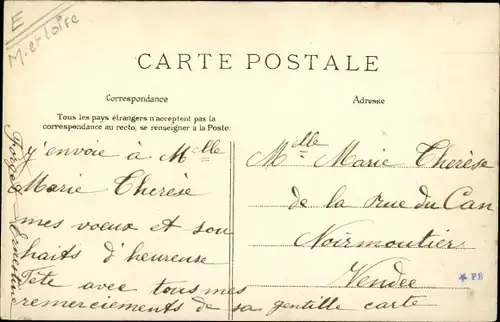 E
M. et Loire
CARTE POSTALE
Correspondance
Adresse
Tous les pays étrangers n'acceptent pas la
correspondance au recto, se renseigner à la Poste.
j'envoie à Melle
Marie Therèse
mes voeux et sou
haits d'heureuse
fête avec tous mes
remerciements de sa gentille carte
Melle Marie Therèse
de la rue du Can
Noirmoutier
Vendee
* PB